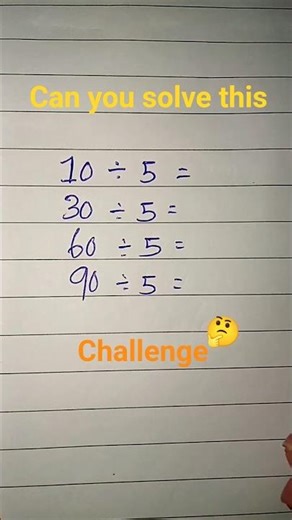 Can you solve this
10 ÷ 5 =
30 ÷ 5 =
60 ÷ 5 =
90 ÷ 5 =
Challenge🤔